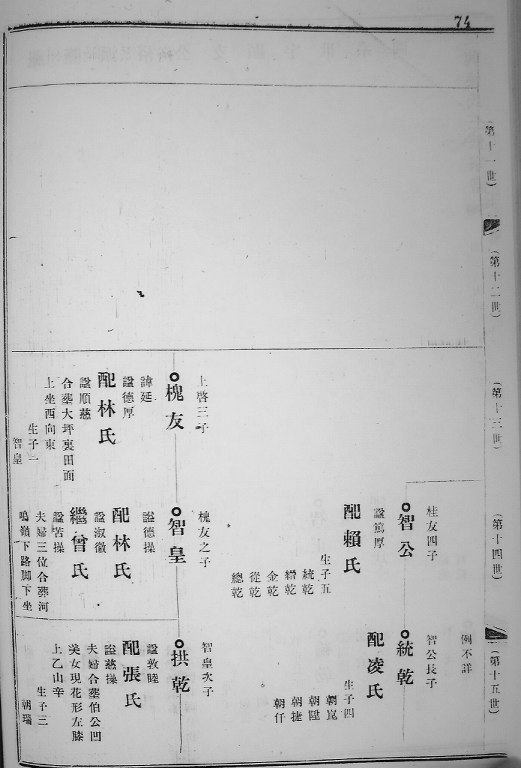 74
(第十一世)
(第十二世)
(第十三世)
(第十四世)
(第十五世)
上啓三子
槐友
諱延
諡德厚
配林氏
諡順慈
合葬大坪裏田面
上坐西向東
生子一
智皇
桂友四子
智公
諡篤厚
配賴氏
生子五
統乾
縉乾
金乾
從乾
總乾
槐友之子
智皇
諡德操
配林氏
諡淑徽
繼曾氏
諡苦操
夫婦三位合葬河
鳴嶺下路脚下坐
例不詳
智公長子
統乾
配凌氏
生子四
朝崑
朝陞
朝捷
朝仟
智皇次子
拱乾
諡敦睦
配張氏
諡慈操
夫婦合葬伯公凹
美女現花形左膝
上乙山辛
生子三
朝瑞